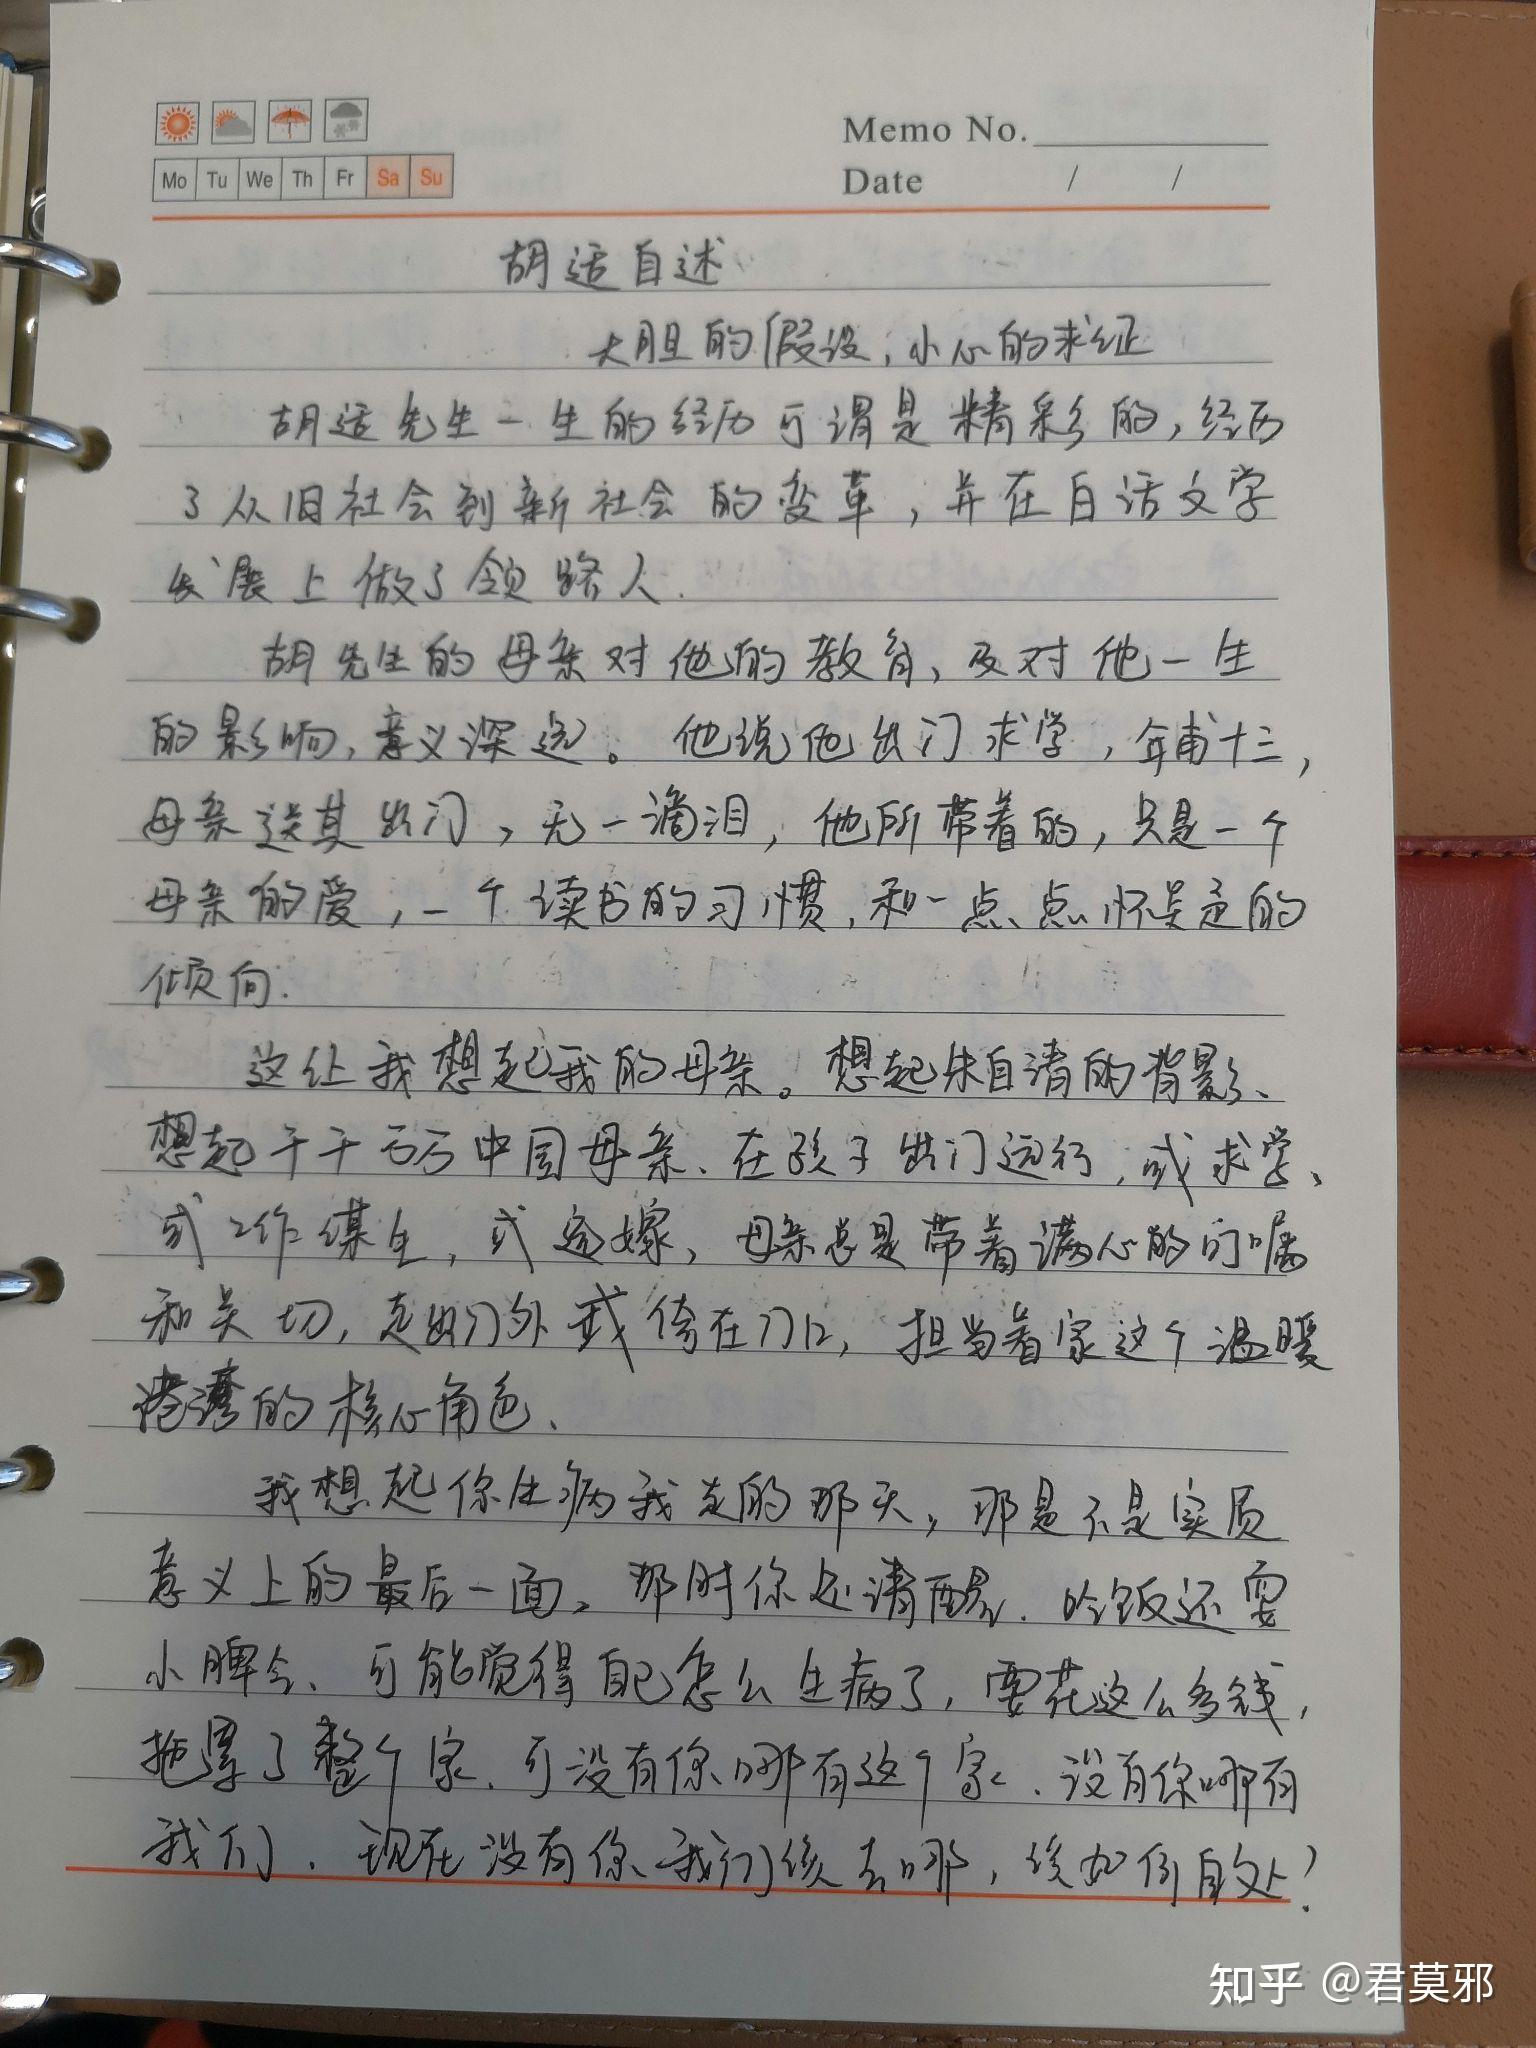 Memo No.
Mo Tu We Th Fr Sa Su
Date / /
胡适自述
大胆的假设，小心的求证
胡适先生一生的经历可谓是精彩的，经历
了从旧社会到新社会的变革，并在白话文学
发展上做了领路人.
胡先生的母亲对他的教育、及对他一生
的影响，意义深远。他说他出门求学，年甫十三，
母亲送其出门，无一滴泪，他所带着的，只是一个
母亲的爱，一个读书的习惯，和一点点怀疑的
倾向.
这让我想起我的母亲。想起朱自清的背影、
想起千千万万中国母亲、在孩子出门远行，或求学、
或工作谋生，或远嫁，母亲总是带着满心的叮嘱
和关切，走出门外或倚在门口，担当着家这个温暖
港湾的核心角色、
我想起你生病我走的那天，那是不是实质
意义上的最后一面，那时你还清醒．吃饭还耍
小脾气、可能觉得自己怎么生病了，要花这么多钱，
拖累了整个家．可没有你哪有这个家．没有你哪有
我们．现在没有你我们该去哪，该如何自处？
知乎 @君莫邪